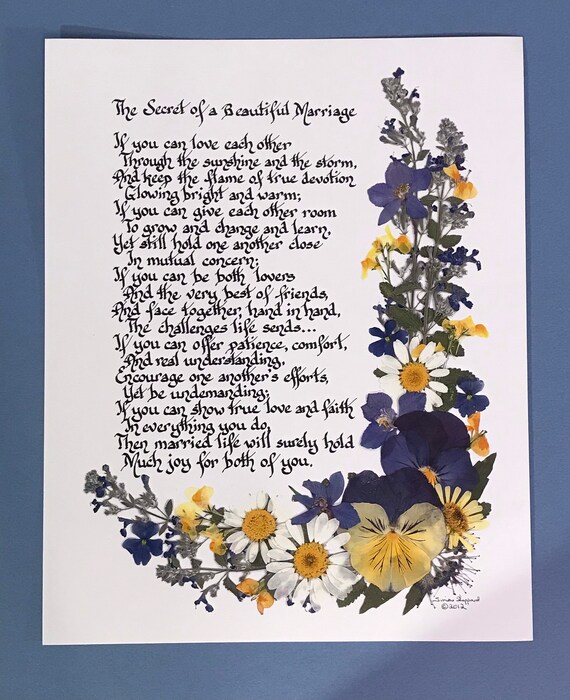 The Secret of a Beautiful Marriage
If you can love each other
Through the sunshine and the storm,
And keep the flame of true devotion
Glowing bright and warm;
If you can give each other room
To grow and change and learn,
Yet still hold one another close
In mutual concern;
If you can be both lovers
And the very best of friends,
And face together, hand in hand,
The challenges life sends...
If you can offer patience, comfort,
And real understanding,
Encourage one another's efforts,
Yet be undemanding;
If you can show true love and faith
In everything you do,
Then married life will surely hold
Much joy for both of you.
Sheppard
©2012